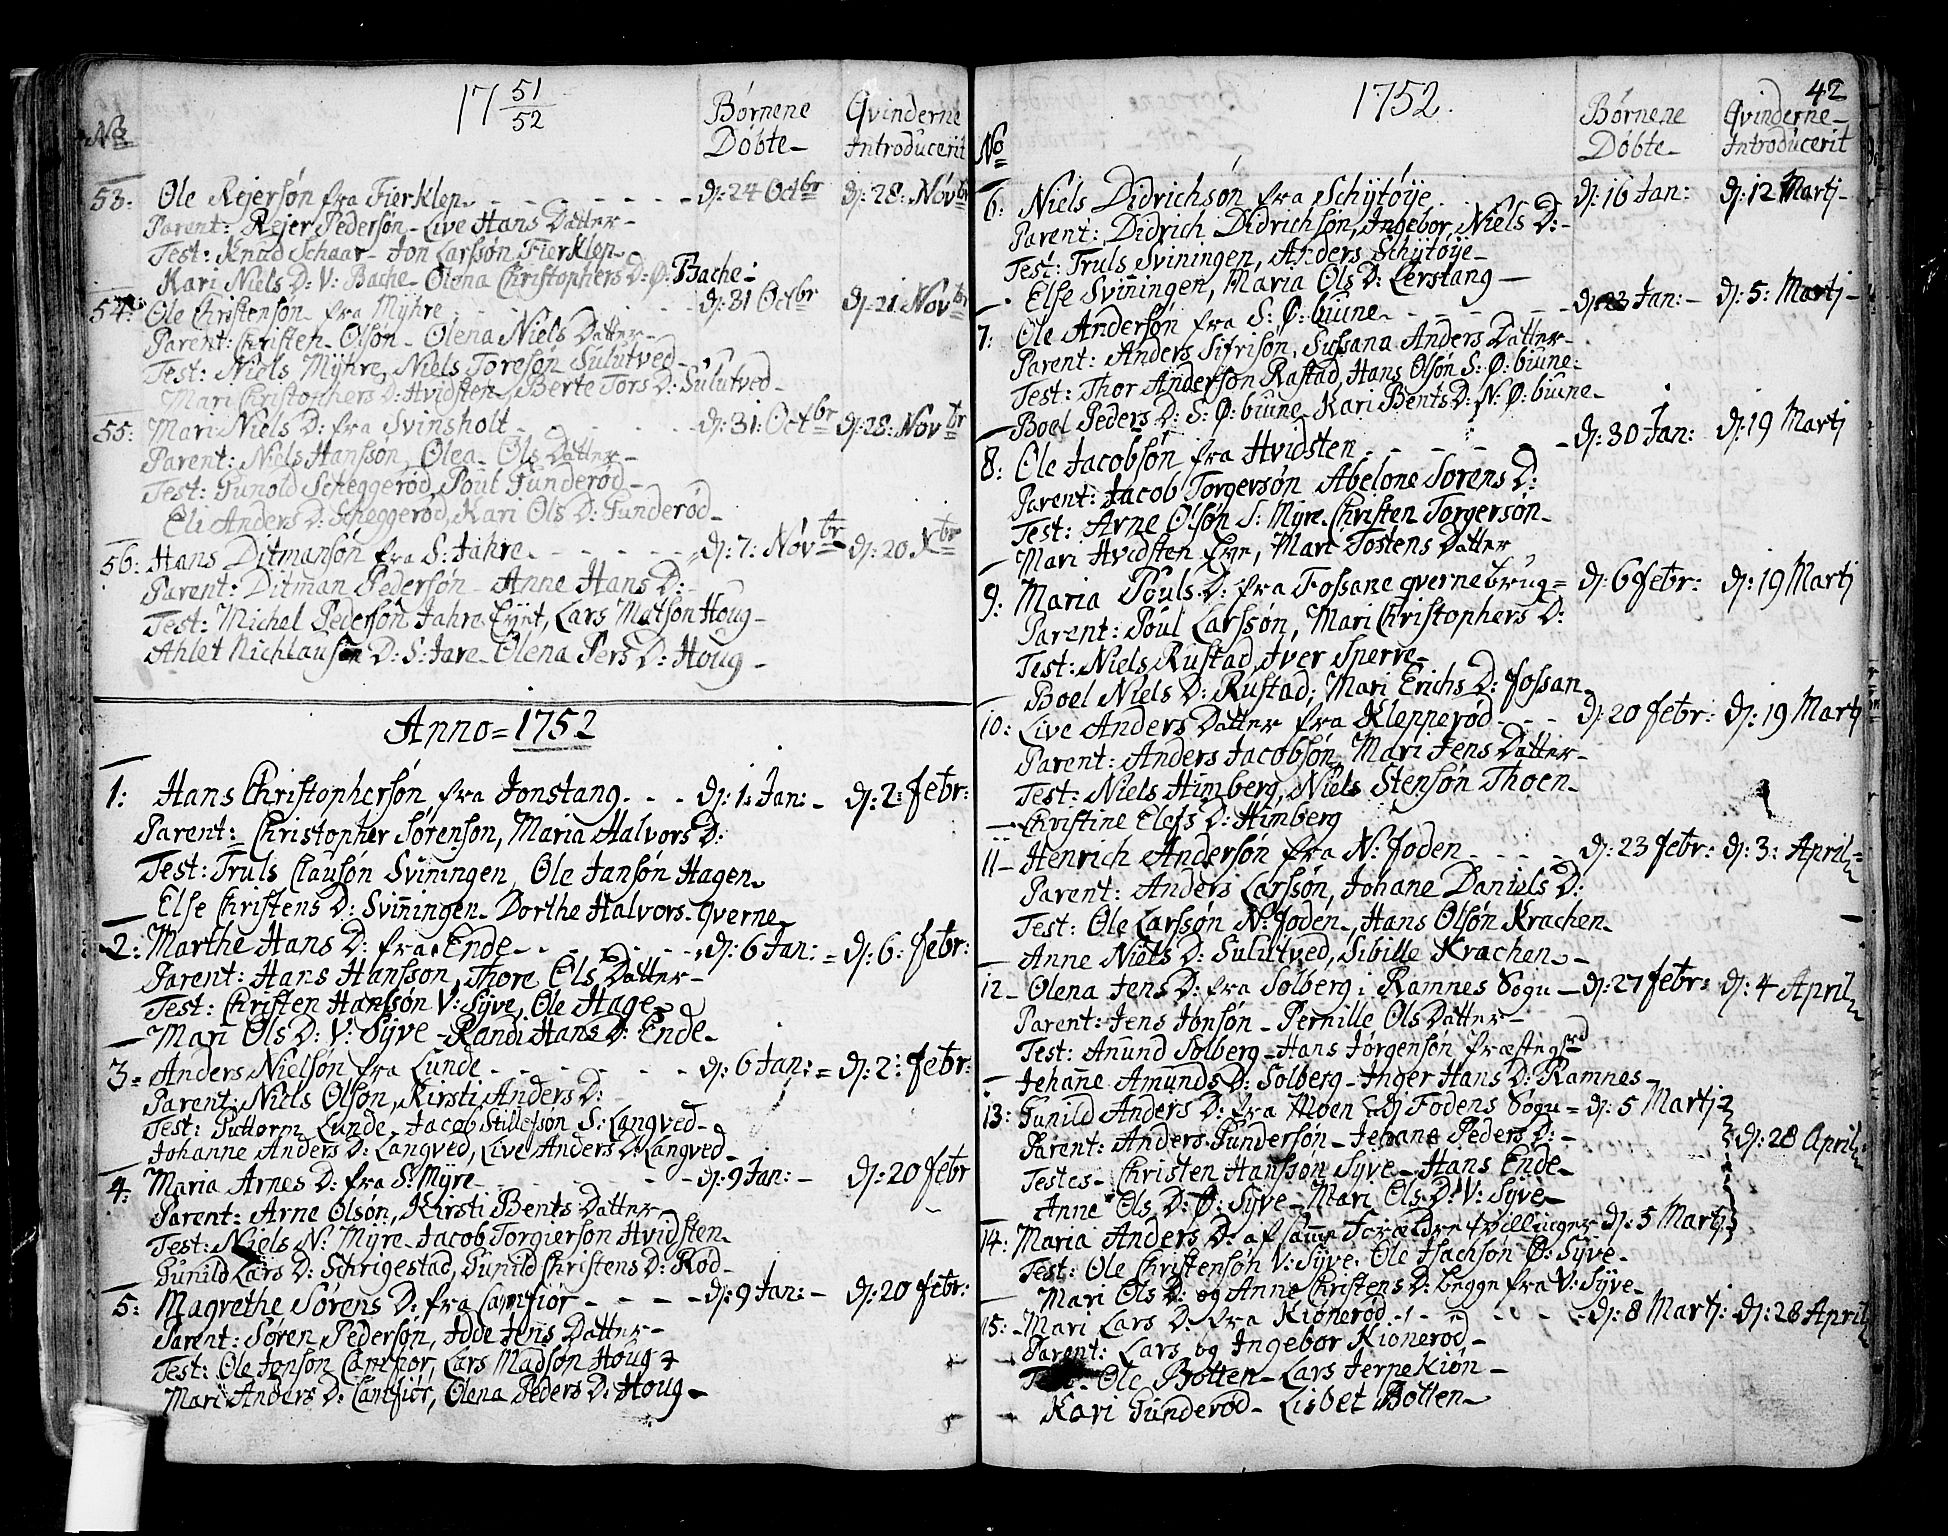 17 51/52
Børnene Døbte
Qvinderne Introducerit
No
53. Ole Rejersøn fra Fierklen - d: 24 Octbr d: 28: Novbr
Parent: Rejer Pedersøn - Live Hans Datter -
Test: Knud Schaar - Jon Larssøn Fierklen -
Kari Niels D: V: Bache - Olena Christophers D: Ø: Bache -
54: Ole Christensøn fra Mÿhre - d: 31 Octbr d: 21 Novbr
Parent: Christen Olsøn - Olena Niels Datter -
Test: Niels Mÿhre, Niels Toresøn Sulutved -
Mari Christophers D: Hvidsten, Berte Tors D: Sulutved -
55: Mari Niels D: fra Svinsholt - d: 31: Octbr d: 28: Novbr
Parent: Niels Hanssøn, Olea Ols Datter -
Test: Gunold Scheggerød, Poul Gunderød -
Eli Anders D: Scheggerød, Kari Ols D: Gunderød -
56: Hans Ditmansøn fra S: Jahre - d: 7: Novbr d: 20 Xbr
Parent: Ditman Pedersøn - Anne Hans D: -
Test: Michel Pedersøn Jahre Eÿet, Lars Matsøn Houg -
Ahlet Nichlausøn D: S: Jare - Olena Pers D: Houg -
Anno = 1752
1: Hans Christophersøn fra Jonstang - d: 1: Jan: - d: 2: febr:
Parent: Christopher Sørensøn, Maria Halvors D:
Test: Truls Clausøn Sviningen, Ole Jansøn Hagen -
Else Christens D: Sviningen - Dorthe Halvors - qverne -
2: Marthe Hans D: fra Ende - d: 6 Jan: = d: 6: febr:
Parent: Hans Hansson, Thore Ols Datter -
Test: Christen Hanssøn V: Sÿve, Ole Hage -
Mari Ols D: V: Sÿve - Randi Hans D: Ende -
3 = Anders Nielsøn fra Lunde - d: 6 Jan: = d: 2: febr:
Parent: Niels Olsøn, Kirsti Anders D:
Test: Guttorm Lunde, Jacob Stillefsøn S: Langved -
Johanne Anders D: Langved, Live Anders D: Langved -
4: Maria Arnes D: fra S: Mÿre - d: 9 Jan: - d: 20 febr
Parent: Arne Olsøn, Kirsti Bents Datter
Test: Niels N: Mÿre - Jacob Torgiersøn Hvidsten -
Gunild Lars D: Schrigestad, Gunild Christens D: Rød -
5: Magrethe Sørens D: fra Camfiør - d: 9 Jan: - d: 20 febr:
Parent: Søren Pedersøn, Idde Jens Datter -
Test: Ole Jonson Camfiør, Lars Madsøn Houg
Mari Anders D: Camfiør, Olena Peders D: Houg -
1752.
42
Børnene Døbte -
Qvinderne - Introducerit
No
6: Niels Didrichsøn fra Schÿtøÿe - d: 16 Jan: d: 12 Martj -
Parent: Didrich Didrichsøn, Ingebor Niels D: -
Test: Truls Sviningen, Anders Schÿtøÿe -
Else Sviningen, Maria Ols D: Lerstang -
7: Ole Andersøn fra S: Ø: biune - d: 23 Jan: - d: 5: Martj -
Parent: Anders Sifrisøn, Sussana Anders Datter -
Test: Thor Andersøn Rastad, Hans Olsøn S: Ø: biune -
Boel Peders D: S: Ø: biune - Kari Bents D: N: Ø: biune -
8: Ole Jacobsøn fra Hvidsten - d: 30 Jan: d: 19 Martj
Parent: Jacob Torgersøn Abelone Sorens D:
Test: Arne Olsøn S: Mÿre - Christen Torgersøn -
Mari Hvidsten Eÿe, Mari Tostens Datter
9: Maria Pouls D: fra Fossane qvernebrug = d: 6 febr: d: 19 Martj
Parent: Poul Larssøn, Mari Christophers D:
Test: Niels Rustad, Iver Sperre -
Boel Niels D: Rustad, Mari Erichs D: fossan -
10: Live Anders Datter fra Klepperød - d: 20 febr: d: 19 Martj
Parent: Anders Jacobsøn, Mari Jens Datter -
Test: Niels Himberg, Niels Stensøn Thoen -
Christine Elefs D: Himberg
11 - Henrich Andersøn fra N: Foden - d: 23 febr: d: 3: April
Parent: Anders Larssøn, Johane Daniels D:
Test: Ole Larssøn N: Foden, Hans Olsøn Krachen -
Anne Niels D: Sulutved, Sibille Krachen -
12 - Olena Jens D: fra Solberg i Ramnes Sogn - d: 27 febr: d: 4 April
Parent: Jens Jonsøn - Pernille Ols Datter -
Test: Amund Solberg - Hans Jørgensøn Præstegrd
Jehanne Amunds D: Solberg - Inger Hans D: Ramnes -
13: Gunild Anders D: fra Moen i Fodens Sogn = d: 5 Martj d: 28 April
Parent: Anders Gundersøn - Jehane Peders D: -
Testes - Christen Hanssøn Sÿve - Hans Ende -
Anne Ols D: Ø: Sÿve - Mari Ols D: V: Sÿve -
14: Maria Anders D: af samme Forældre tvillinger d: 5 Martj
Test: Ole Christensøn V: Sÿve, Ole Isachsøn Ø: Sÿve -
Mari Ols D: og Anne Christens D: begge fra V: Sÿve -
15: Mari Lars D: fra Kiønerød - d: 8 Martj: d: 28 April
Parent: Lars og Ingebor Kiønerød -
Ole Botten - Lars Jernekiøn -
Kari Gunderød - Lisbet Botten -